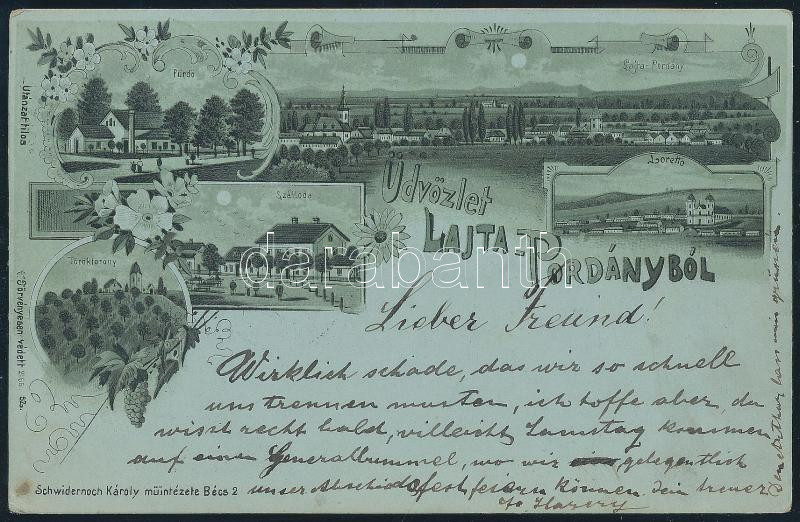 Fürdő
Lajta-Pordány
Utánzat tilos
Loretto
Szálloda
Üdvözlet
LAJTA-PORDÁNYBÓL
darabanth
Töröktorony
Törvényesen védett
Lieber Freund!
Wirklich schade, das wir so schnell
uns trennen mussten, ich hoffe aber, du
wirst recht bald, villeicht Samstag kommen
auf einen Generalbummel, wo wir gelegentlich
unser Abschiedsfest feiern können. Dein treuer
Schwidernoch Károly müintézete Bécs 2